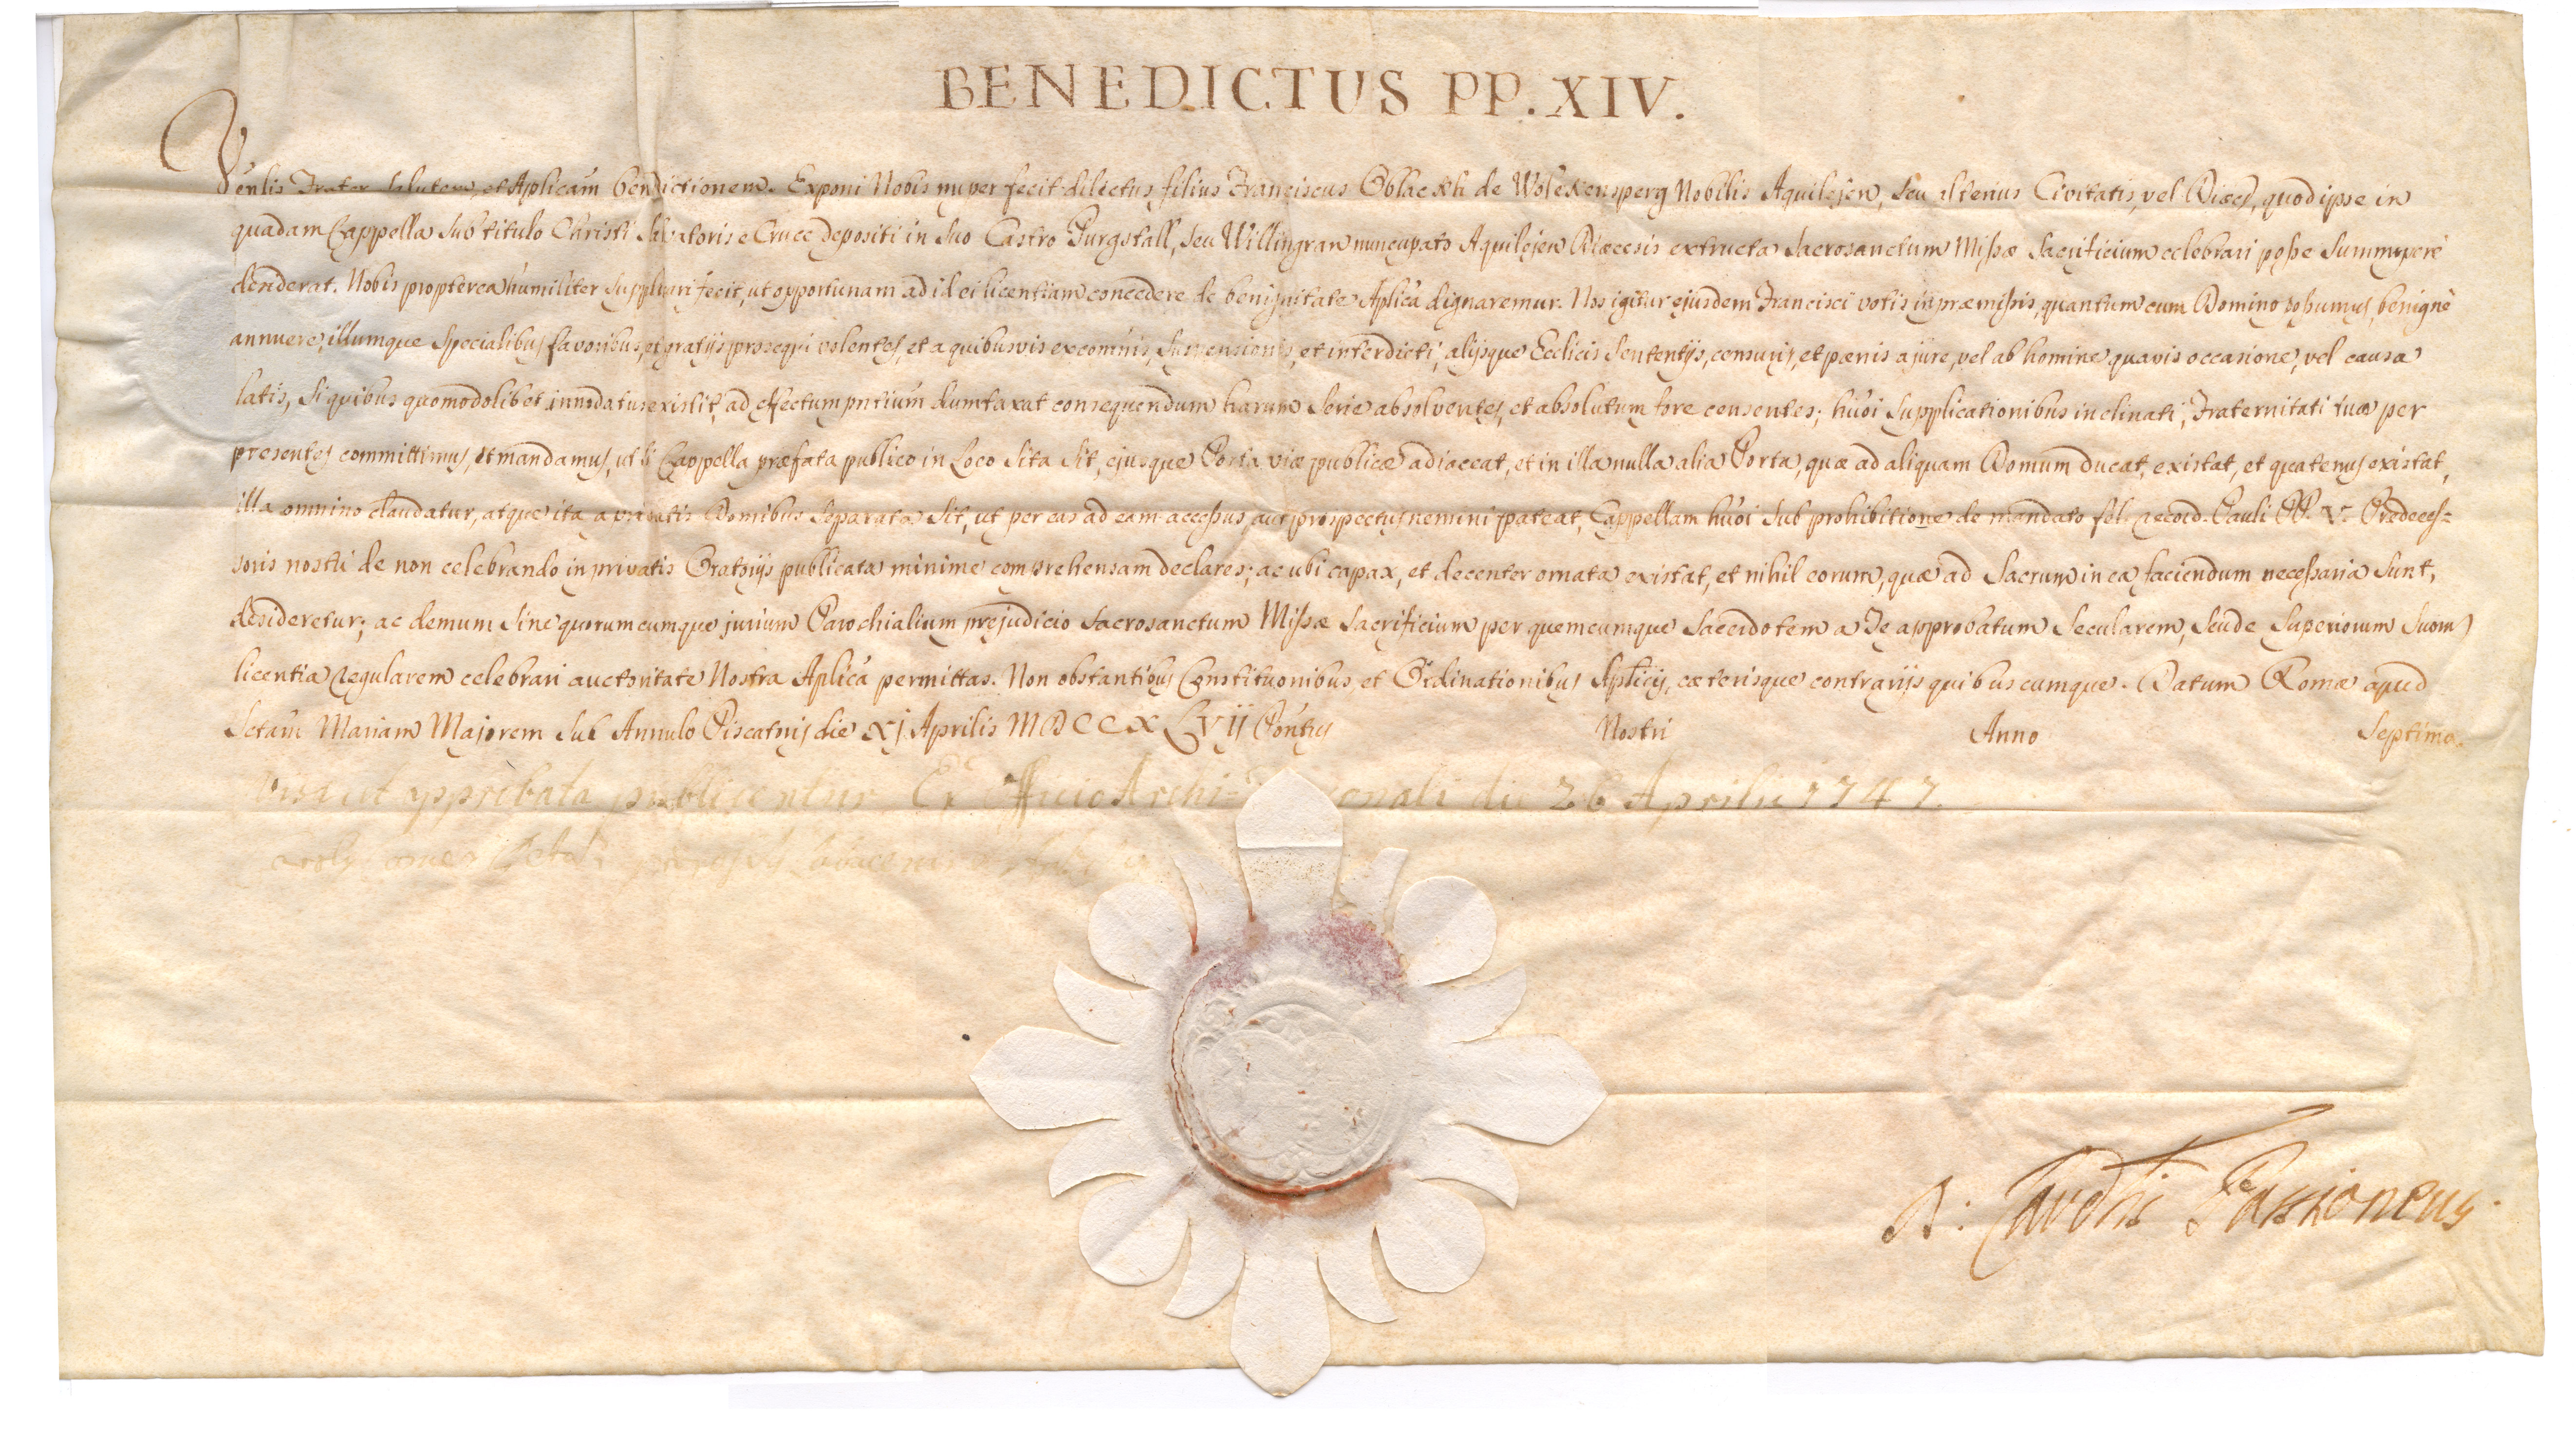 BENEDICTUS PP. XIV.
Venlis Frater salutem, et Aplicam benedictionem. Exponi Nobis nuper fecit dilectus filius Franciscus Oblackh de Wolckensperg Nobilis Aquilejen, seu alterius Civitatis, vel Diæcs, quod ipse in
quadam Cappella sub titulo Christi Salvatoris e Cruce depositi in suo Castro Purgstall, seu Willingran nuncupato Aquilejen Diæcesis extructa Sacrosanctum Missæ Sacrificium celebrari posse summopere
desiderat. Nobis propterea humiliter supplicari fecit, ut opportunam ad id ei licentiam concedere de benignitate Aplica dignaremur. Nos igitur ejusdem Francisci votis in præmissis, quantum cum Domino possumus, benigne
annuere, illumque specialibus favoribus, et gratijs prosequi volentes, et a quibusvis excomnis, suspensionis, et interdicti, alijsque Ecclicis sententijs, censuris, et pœnis a jure, vel ab homine quavis occasione, vel causa
latis, si quibus quomodolibet innodatus existit, ad effectum pntium dumtaxat consequendum harum serie absolventes, et absolutum fore censentes; huoi supplicationibus inclinati, Fraternitati tuæ per
presentes committimus, et mandamus, ut si Cappella præfata publico in Loco sita sit, ejusque Porta viæ publicæ adiaceat, et in illa nulla alia Porta, quæ ad aliquam Domum ducat, existat, et quatenus existat,
illa omnino claudatur, atque ita a privatis Domibus separata sit, ut per eas ad eam accessus, aut prospectus nemini pateat, Cappellam huoi sub prohibitione de mandato fel. record. Pauli PP. V. Predeces=
soris nostri de non celebrando in privatis Oratorijs publicata minime comprehensam declares; ac ubi capax, et decenter ornata existat, et nihil eorum, quæ ad Sacrum in ea faciendum necessaria sunt,
desideretur; ac demum sine quorumcumque jurium Parochialium prejudicio Sacrosanctum Missæ Sacrificium per quemcumque Sacerdotem a Te approbatum Secularem, seu de Superiorum suom
licentia Regularem celebrari auctoritate Nostra Aplica permittas. Non obstantibus Constitutionibus, et Ordinationibus Aplicis, cæterisque contrarijs quibuscumque. Datum Romæ apud
Sctam Mariam Majorem sub Annulo Piscatoris die XJ Aprilis MDCCXLVIJ Pontus Nostri Anno Septimo.
Visa et approbata publicentur Ex Officio Archi= die 26 Aprilis 1747.
D: Cardlis Passioneus.